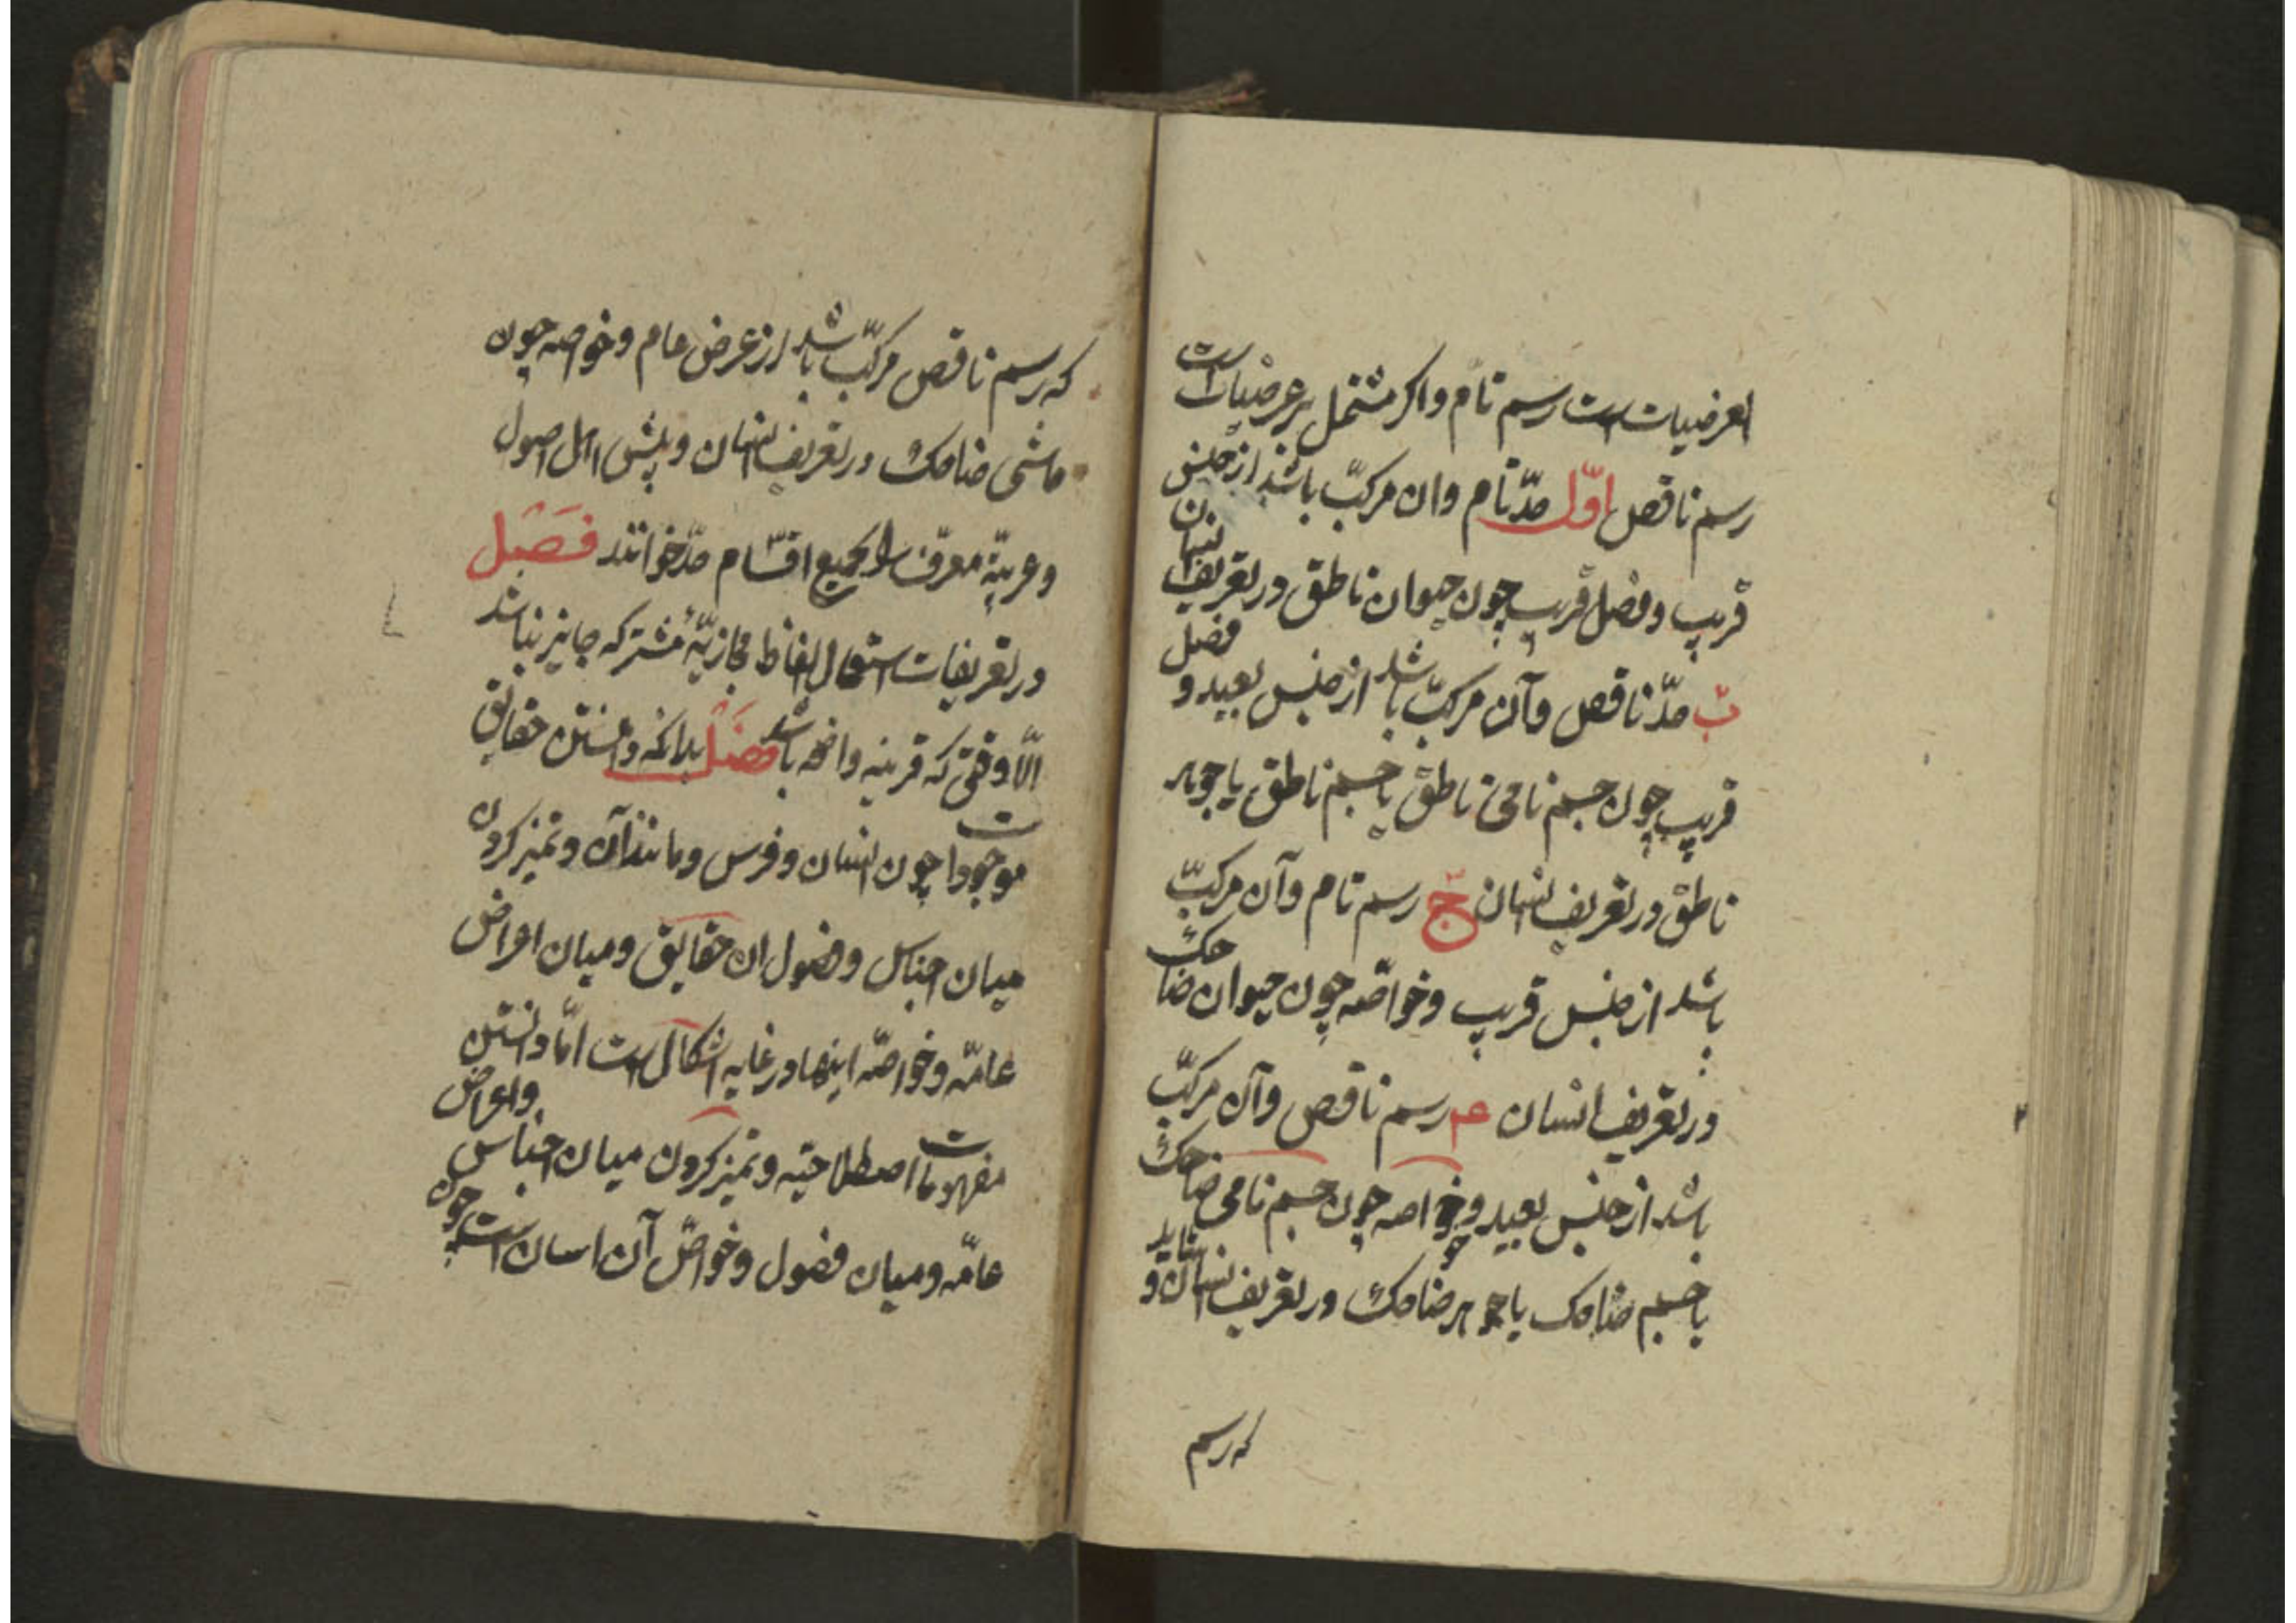 العرضیات است رسم تام و اکر مشتمل بر عرضیات است
رسم ناقص اوّل حدّ تام وان مرکبّ باشد از جنس
قریب و فصل قریب چون حیوان ناطق در تعریف انسان
بّ حدّ ناقص وآن مرکبّ باشد از جنس بعید و فصل
قریب چون جسم نامی ناطق یا جسم ناطق یا جوهر
ناطق در تعریف انسان جّ رسم تام وآن مرکبّ
باشد از جنس قریب وخواصّه چون حیوان ضاحک
در تعریف انسان رسم ناقص وآن مرکبّ
باشد از جنس بعید وخواصه چون جسم نامی ضاحک
یا جسم ضاحک یا جوهر ضاحک در تعریف انسان و شاید
که رسم
که رسم ناقص مرکبّ باشد از عرض عام وخواصه چون
ماشی ضاحک در تعریف انسان وپیش اهل اصول
وعربیّه معرّف را بجمیع اقسام حدّ خوانند فصل
در تعریفات استعمال الفاظ مجازیّه مشترکه جایز نباشد
الّا وقتی که قرینه واضحه باشد فصل بدانکه دانستن حقایق
موجودات چون انسان و فرس و مانند آن و تمیز کردن
میان اجناس وفصول ان حقایق ومیان اعراض
عامّه وخواصّه اینها در غایه اشکال است امّا دانستن
مفهومات اصطلاحیّه وتمیز کردن میان اجناس واعراض
عامّه ومیان فصول وخواصّ آن اسان است چون